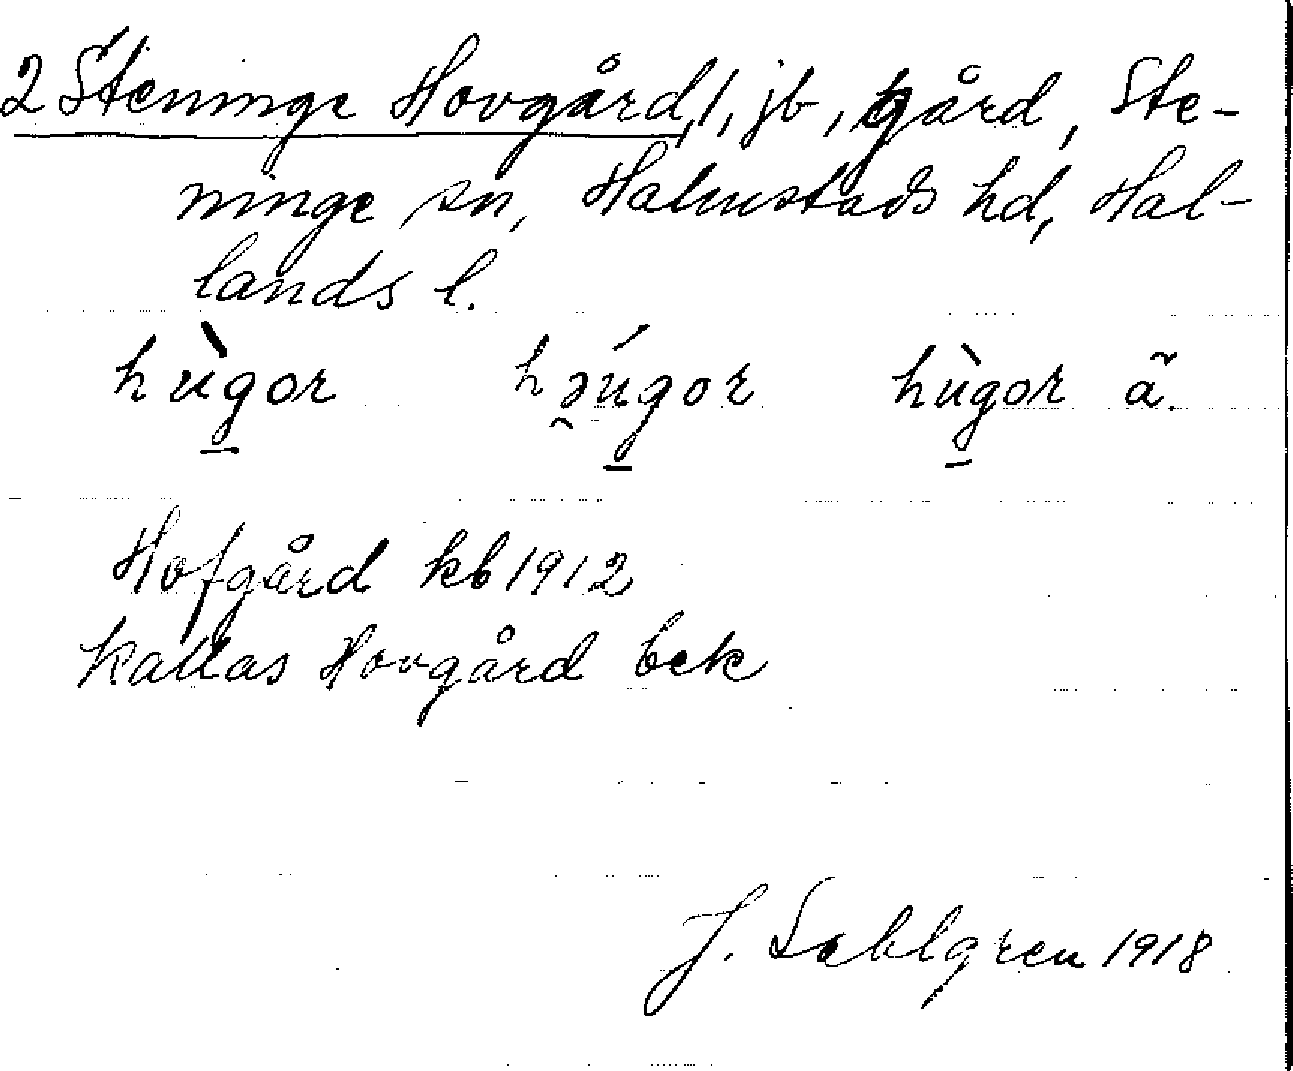 2 Steninge Hovgård, 1, jb, gård, Ste-
ninge sn, Halmstads hd, Hal-
lands l.
hùgor həúgor hùgor ã.
Hofgård kb 1912
kallas Hovgård bek
J. Sahlgren 1918